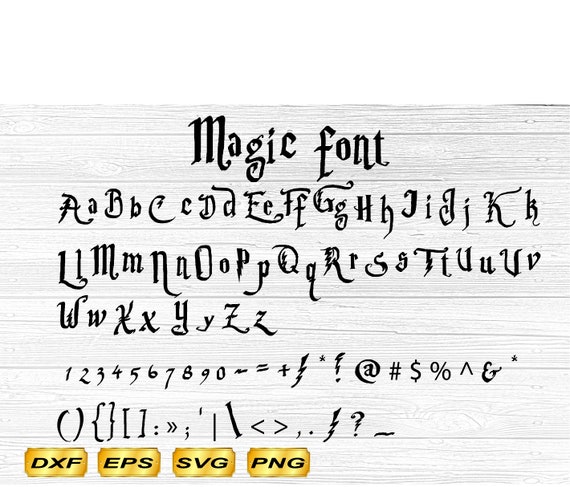 Magic font
A a B b C c D d E e F f G g H h I i J j K k
L l M m N n O o P p Q q R r S s T t U u V v
W w X x Y y Z z
1 2 3 4 5 6 7 8 9 0 ~ = + / * ! @ # $ % ^ & *
( ) { } [ ] : » ; ' | \ < > , . / ? _
DXF EPS SVG PNG